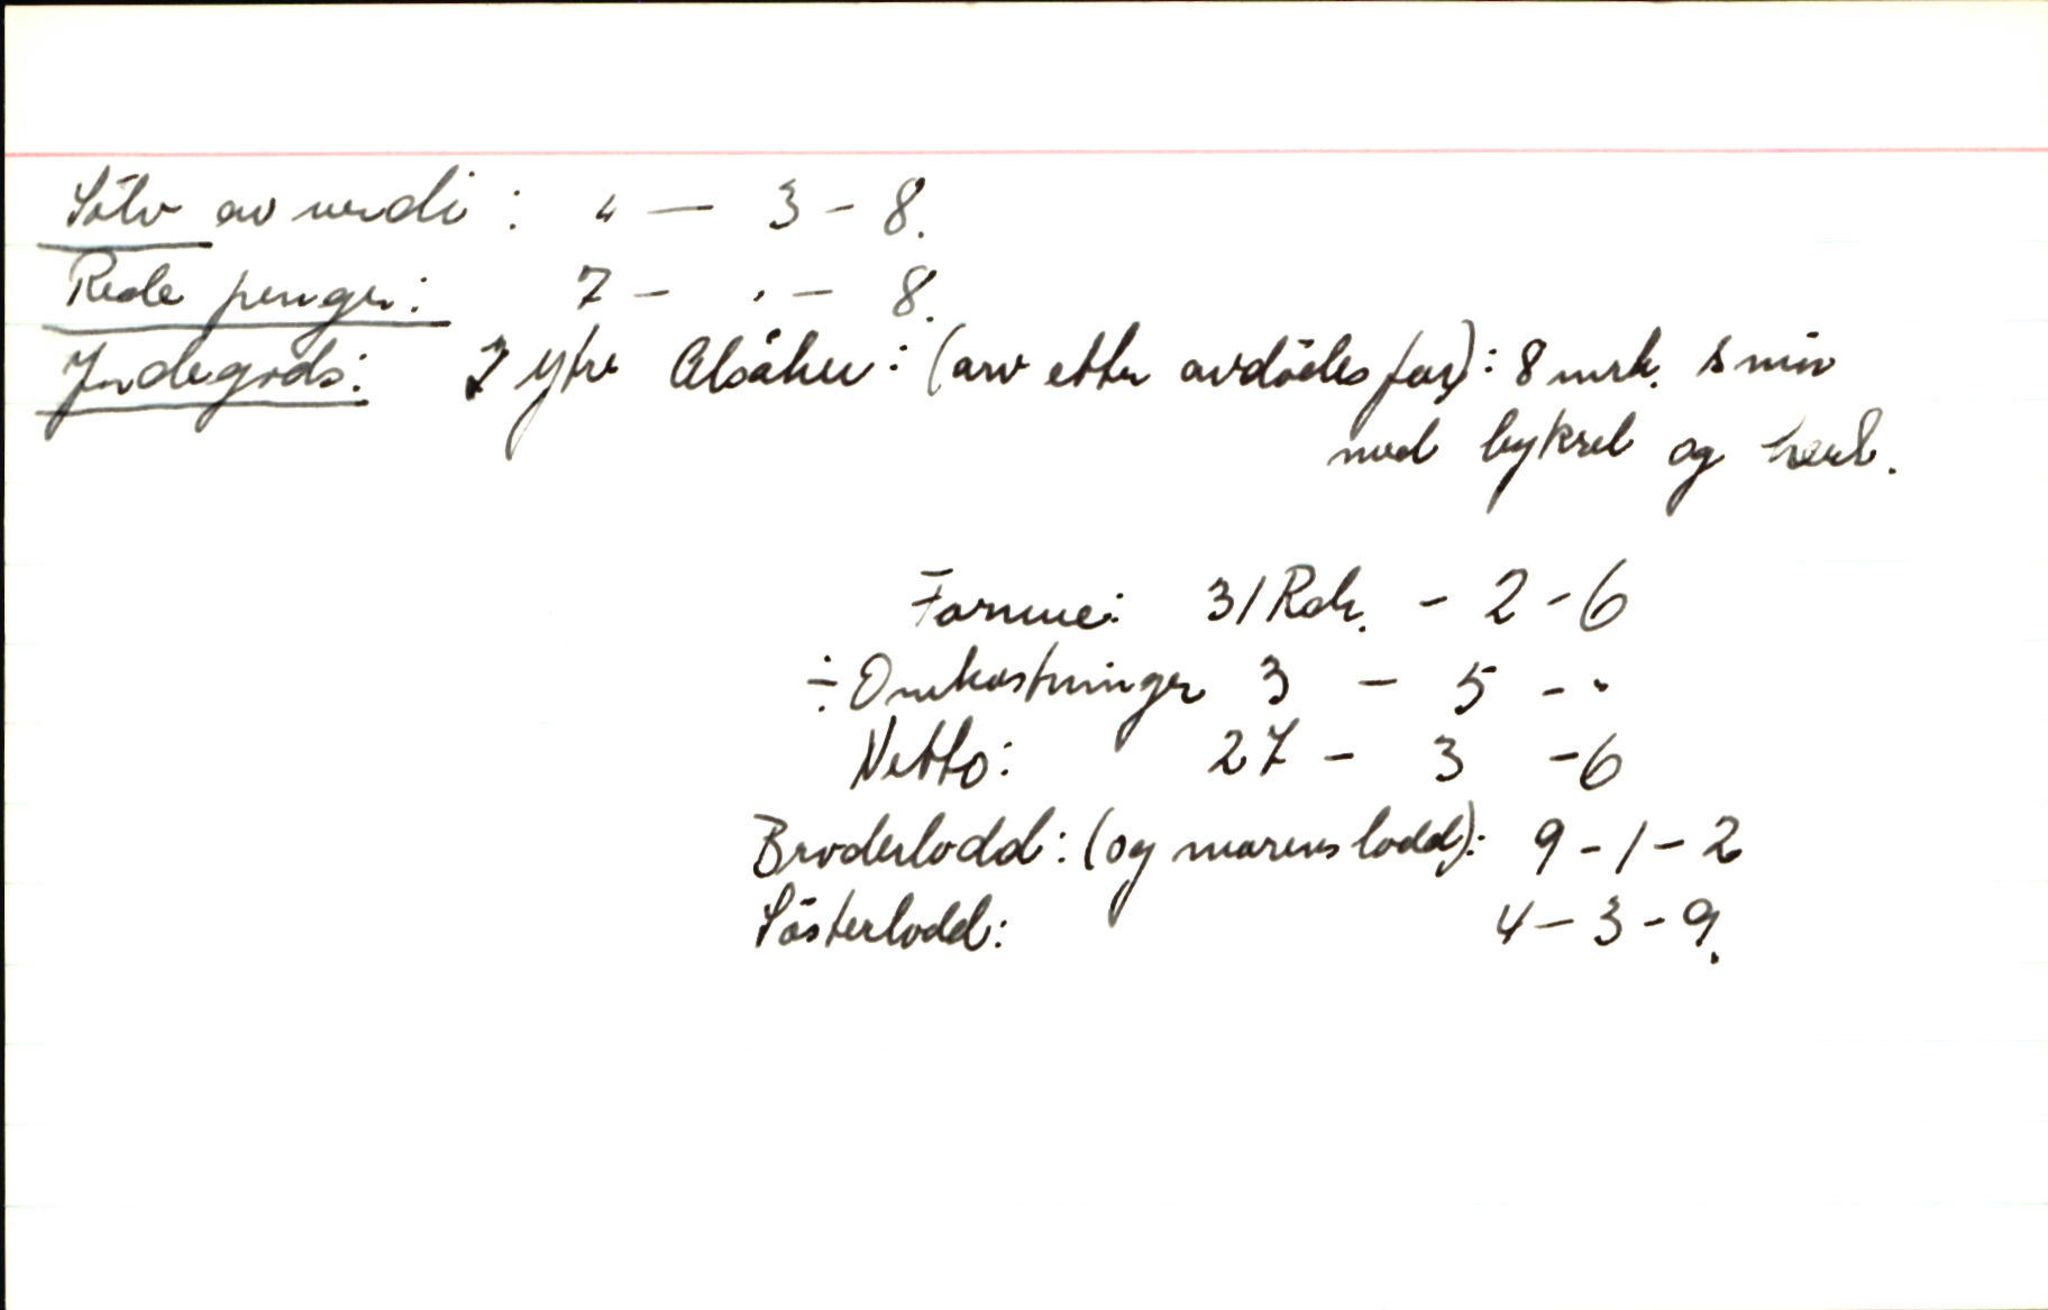 Sölv av verdi: " — 3 - 8.
Rede penger: 7 - . - 8.
Jndegods: I ytre Alsåker: (arv etter avdödes far): 8 mrk. smör
med byksel og herl.
Formue: 31 Rdr. - 2 - 6
÷ Omkostninger 3 - 5 - "
Netto: 27 - 3 - 6
Broderlodd: (og morens lodd): 9 - 1 - 2
Sösterlodd: 4 - 3 - 9.